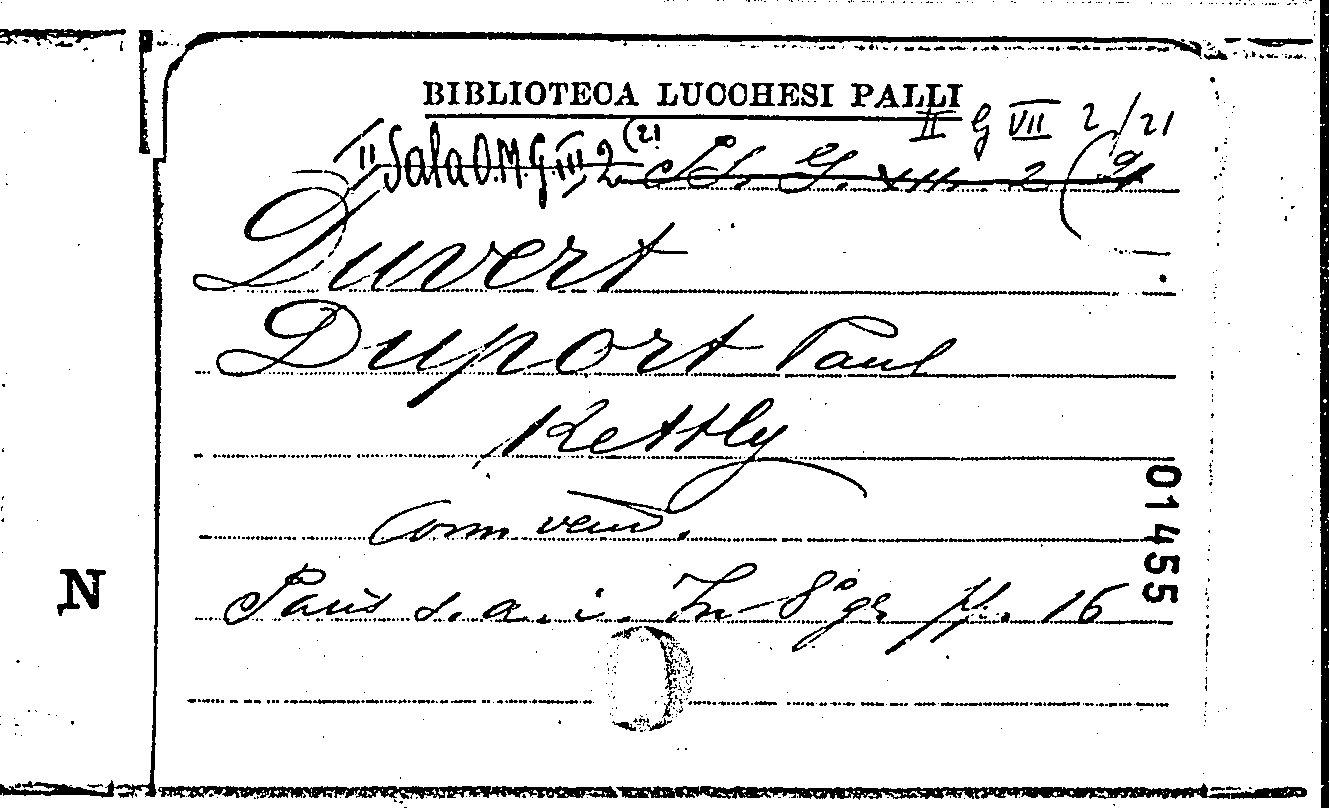 BIBLIOTECA LUCCHESI PALLI
II G VII 2/21
II Sala O.M.G. III 2 (21
Duvert
Duport Paul
Kettly
Com. vaud.
Paris s. a. i. In-8° gr pp. 16
01455
N